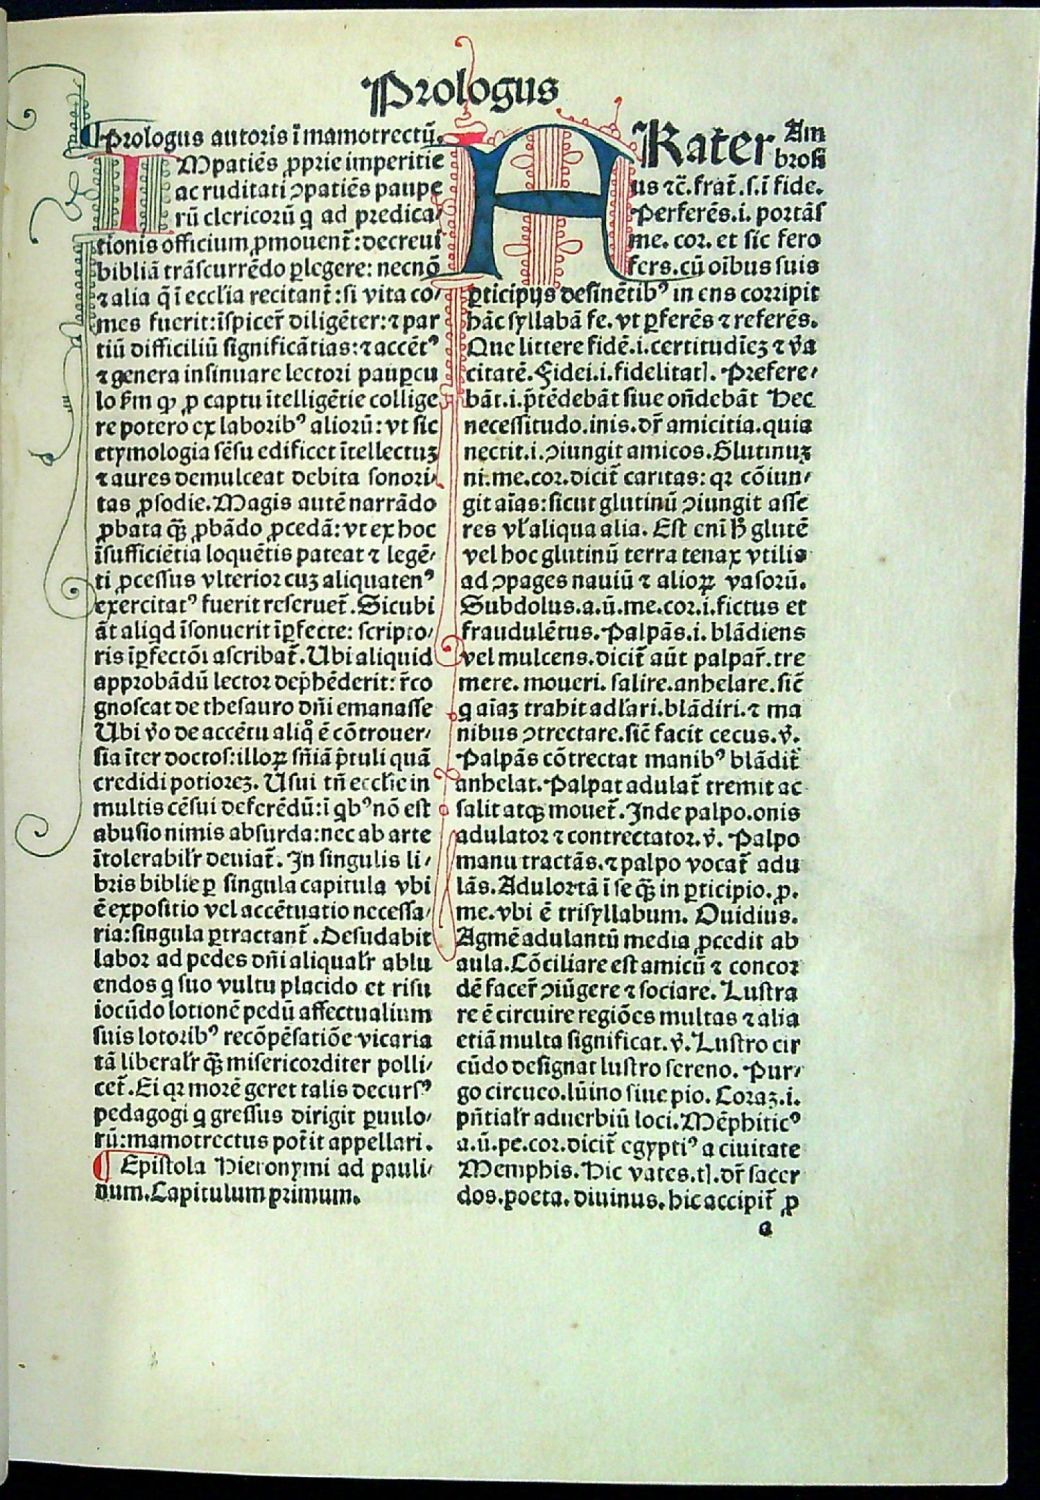 Prologus
Prologus autoris ī mamotrectū.
IMpatiēs ꝓprie imperitie
ac ruditati ꝯpatiēs paupe
rū clericorū q ad predica-
tionis officium ꝓmouent̄: decreui
bibliā trāscurrēdo ꝑlegere: necnō
⁊ alia q̄ ī eccl'ia recitant̄: si vita co-
mes fuerit: īspicer̄ diligēter: ⁊ par
tiū difficiliū significātias: ⁊ accēt⁹
⁊ genera insinuare lectori paupcu
lo km̄ ꝙ ꝓ captu ītelligētie collige
re potero ex laborib⁹ alioꝛū: vt sic
etymologia sēsu edificet ītellectuꝫ
⁊ aures demulceat debita sonori-
tas ꝓsodie. Magis autē narrādo
ꝓbata qꝫ̄ ꝓbādo ꝓcedā: vt ex hoc
īsufficiētia loquētis pateat ⁊ legē-
ti ꝓcessus vlterior cuꝫ aliquaten⁹
exercitat⁹ fuerit reseruet̄. Sicubi
āt aliqd īsonuerit īꝑfecte: scripto-
ris īꝑfectōi ascribat̄. Ubi aliquid
approbādū lector dep̄hēderit: r̄co
gnoscat de thesauro dn̄i emanasse
Ubi v̄o de accētu aliq̊ ē cōtrouer-
sia īter doctos: illoꝝ sn̄iā p̄tuli quā
credidi potiorez. Usui tn̄ ecclie in
multis cēsui deferēdū: ī qb⁹ nō est
abusio nimis absurda: nec ab arte
ītolerabilr̄ deuiat̄. In singulis li-
bris biblie ꝑ singula capitula vbi
ē expositio vel accētuatio necessa-
ria: singula ꝑtractant̄. Desudabit
labor ad pedes dn̄i aliqualr̄ ablu
endos q suo vultu placido et risu
iocūdo lotionē pedū affectualium
suis lotorib⁹ recōpēsatiōe vicaria
tā liberalr̄ qꝫ̄ misericorditer polli-
cet̄. Ei qꝛ morē geret talis decurs⁹
pedagogi q gressus dirigit ꝑuulo-
rū: mamotrectus pot̄it appellari.
Epistola Hieronymi ad pauli-
num. Capitulum primum.
FRater Am
brosi
us ⁊c̄. frat̄. s. ī fide.
Perferēs. i. portās
me. cor. et sic fero
fers. cū oībus suis
ꝑticipijs desinētib⁹ in ens corripit
hāc syllabā fe. vt ꝑferēs ⁊ referēs.
Que littere fidē. i. certitudīeꝫ ⁊ v̄a
citatē. Fidei. i. fidelitatꝭ. Prefere-
bāt. i. p̄tēdebāt siue on̄debāt Hec
necessitudo. inis. dr̄ amicitia. quia
nectit. i. ꝯiungit amicos. Glutinuꝫ
ni. me. cor. dicit̄ caritas: qꝛ cōiun-
git aīas: sicut glutinū ꝯiungit asse
res vl' aliqua alia. Est enī h̄ glutē
vel hoc glutinū terra tenax vtilis
ad ꝯpages nauiū ⁊ alioꝝ vasorū.
Subdolus. a. ū. me. cor. i. fictus et
fraudulētus. Palpās. i. blādiens
vel mulcens. dicit̄ aūt palpar̄. tre
mere. moueri. salire. anhelare. sic̄
q aīaꝫ trahit ad l'ari. blādiri. ⁊ ma
nibus ꝯtrectare. sic̄ facit cecus. v̄.
Palpās cōtrectat manib⁹ blādit̄
anhelat. Palpat adulat̄ tremit ac
salit atqꝫ mouet̄. Inde palpo. onis
adulator ⁊ contrectator. v̄. Palpo
manu tractās. ⁊ palpo vocat̄ adu
lās. Adulortā ī se qꝫ̄ in ꝑticipio. ꝓ.
me. vbi ē trisyllabum. Ouidius.
Agmē adulantū media ꝓcedit ab
aula. Cōciliare est amicū ⁊ concor
dē facer̄ ꝯiūgere ⁊ sociare. Lustra
re ē circuire regiōes multas ⁊ alia
etiā multa significat. v̄. Lustro cir
cūdo designat lustro sereno. Pur-
go circuco. lūino siue pio. Coraꝫ. i.
pn̄tialr̄ aduerbiū loci. Mēphitic⁹
a. ū. pe. cor. dicit̄ egypti⁹ a ciuitate
Memphis. Hic vates. tꝭ. dr̄ sacer
dos. poeta. diuinus. hic accipit̄ ꝓ
a